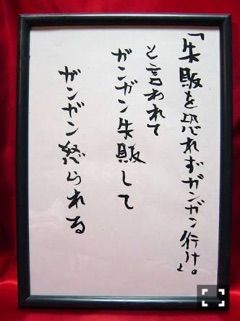 「失敗を恐れずガンガン行け。」
と言われて
ガンガン失敗して
ガンガン怒られる